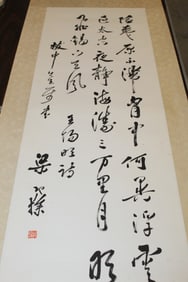 險夷原不滯胸中何異浮雲
過太空夜靜海濤三万里月明
飛錫下天風
王陽明詩
梁寒操